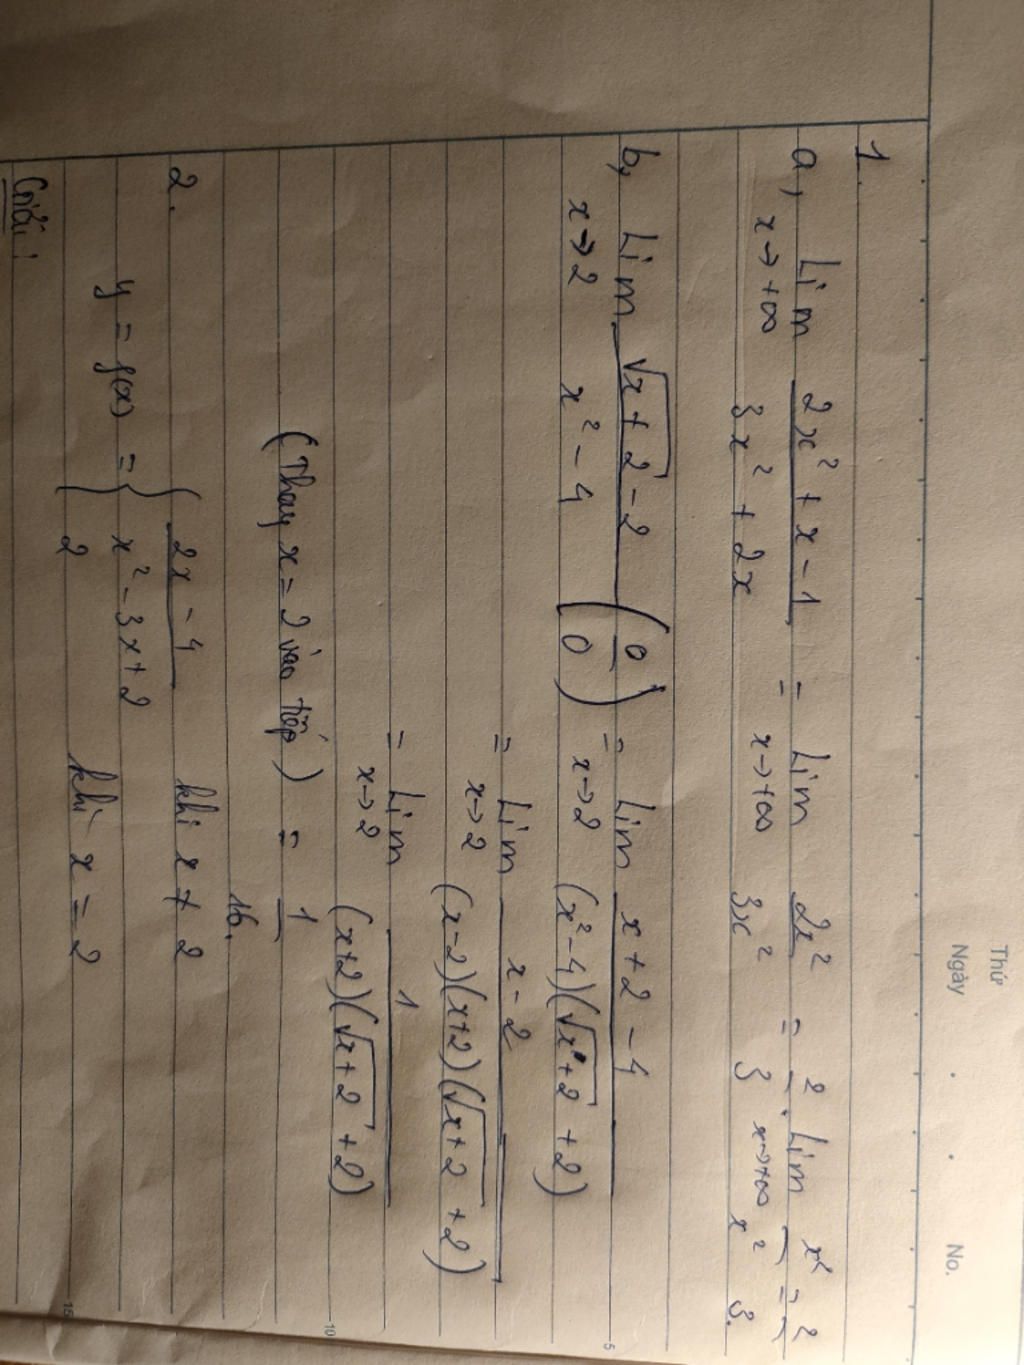 Thứ
Ngày . . No.
1.
a, Lim x→+∞ (2x² + x - 1)/(3x² + 2x) = Lim x→+∞ 2x²/3x² = 2/3 . Lim x→+∞ x²/x² = 2/3.
b, Lim x→2 (√(x+2) - 2)/(x² - 4) (0/0) = Lim x→2 (x+2-4)/((x²-4)(√(x+2) + 2))
= Lim x→2 (x-2)/((x-2)(x+2)(√(x+2) + 2))
= Lim x→2 1/((x+2)(√(x+2) + 2))
(Thay x = 2 vào tiếp) = 1/16.
2.
y = f(x) = { (2x - 4)/(x² - 3x + 2) khi x ≠ 2
2 khi x = 2
Giải:
5
10
15